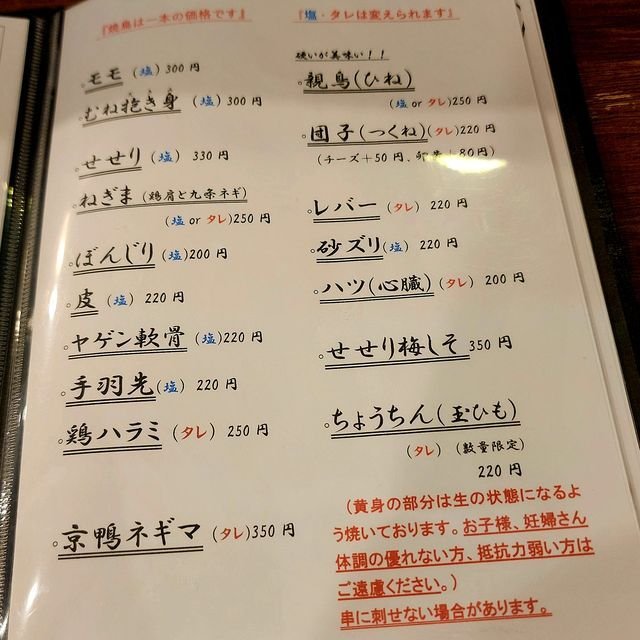 『焼鳥は一本の価格です』
。モモ (塩) 300 円
。むね抱き身 (塩) 300 円
。せせり (塩) 330 円
。ねぎま (鶏肩と九条ネギ)
(塩 or タレ)250 円
。ぼんじり (塩)200 円
。皮 (塩) 220 円
。ヤゲン軟骨 (塩)220 円
。手羽先(塩) 220 円
。鶏ハラミ (タレ) 250 円
。京鴨ネギマ (タレ)350 円
『塩・タレは変えられます』
硬いが美味い!!
。親鳥(ひね)
(塩 or タレ)250 円
。団子(つくね)(タレ)220 円
(チーズ+50 円、卵黄+80円)
。レバー (タレ) 220 円
。砂ズリ(塩) 220 円
。ハツ(心臓) (タレ) 200 円
。せせり梅しそ 350 円
。ちょうちん(玉ひも)
(タレ) (数量限定)
220 円
(黄身の部分は生の状態になるよ
う焼いております。お子様、妊婦さん
体調の優れない方、抵抗力弱い方は
ご遠慮ください。)
串に刺せない場合があります。